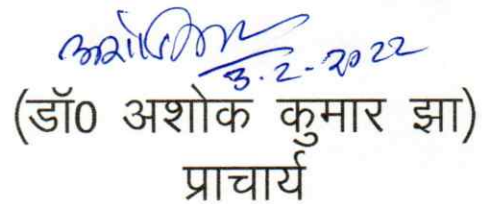 3.2-2022
(डॉ0 अशोक कुमार झा)
प्राचार्य